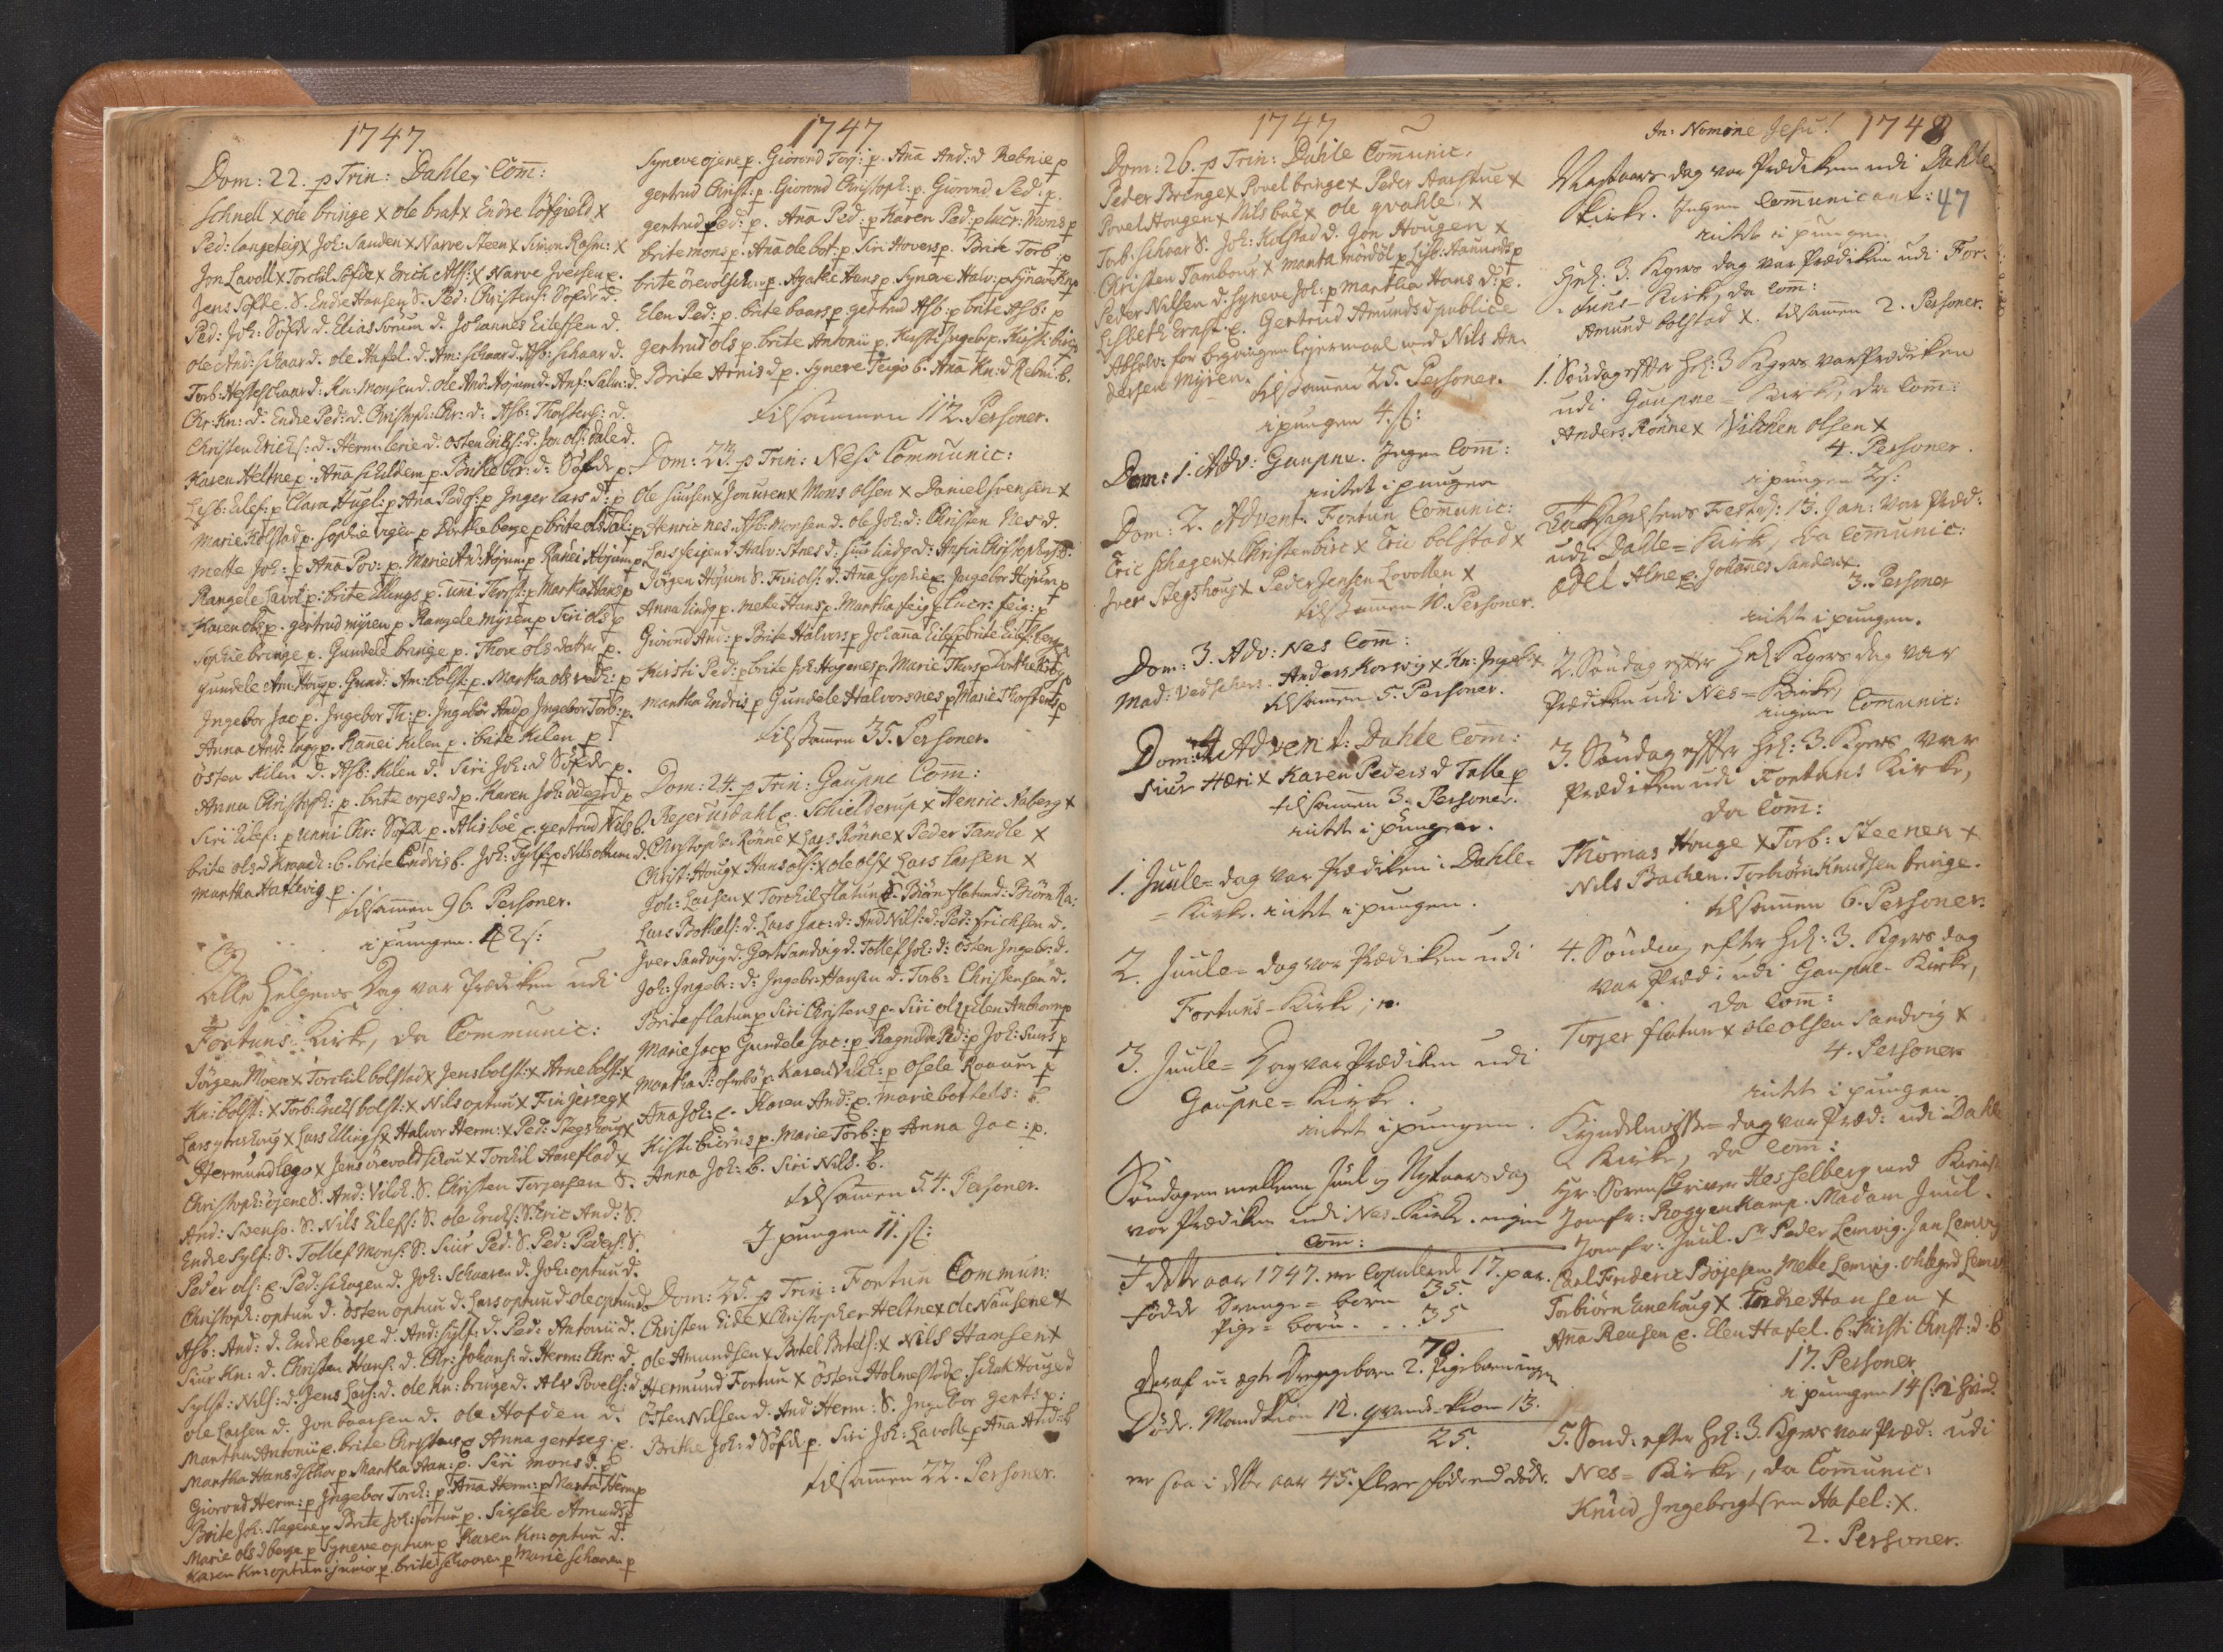 1747
Dom: 22. p Trin: Dahle, Com:
Schnell x ole bringe x ole brat x Endre löfgield x
Ped: langeteig x Joh: Sanden x Narve Steen x Simon Rasm: x
Jon Lavoll x Torchil Söfde x Erich Alf: x Narve Iversen
Jens Söfde. S. Endre Hansen S. Ped: Christens: Söfde d.
Ped: Joh: Söfde d. Elias Sorum d. Johannes Eilefsen d.
ole And: schaar d. ole Hafel. d. Am: schaar d. Asb: schaar d.
Torb: schaar d: Kn: Monsen d. ole And: Höjum d. Anf: Salm: d.
Chr: Kn: d. Endre Ped: d. Christoph: Chr: d: Asb: Thorstens: d.
Christen Erichs: d. Herm: lerie d. Osten Erichs: d. Jon ols: dale d.
Karen Heltne p. Anna Schilden p. Brite Chr: d: Söfde p.
Lisb: Eilef: p Clara Hugl: p Ana Peders: p Inger Lars d: p
Marie Kolstad p. Sophie p Dorthe berge p brite ols Tal: p
Mette Joh: p Ana Pov: p. Marie And: Höjum p Ranei Höjum p
Rangele lavol p. brite Ellings p. unni Thorst: p Martha Hans p
Karen ols p. gertrud myren p Rangele myren p Siri ols p
Sophie bringe p. Gundele bringe p. Thore ols datter p.
gundele Am: Houg p. Gund: Am: bolst: p. Martha ols p
Ingebor Jac p. Ingebor Th: p. Ingebor And p Ingebor Torb: p.
Anna And: p. Rannei Kilen p. brite Kilen p
Östen Kilen d. Asb: Kilen d. Siri Joh: d Söfde p.
Anna Christoph: p. brite d p. Karen Joh: p
Siri Eilef: p unni Chr: Söfde p. Alis boe p. gertrud Nils b.
brite ols d b. brite Endris b. Joh: p Nils d.
Martha Hatlevig p.
tilsamen 96. Personer.
i pungen. 42 s:
Alle Helgens Dag var Prædiken udi
Fortuns Kirke, da Communic:
Jörgen Moen x Torchil bolstad x Jens bolst: x Arne bolst: x
Kn: bolst: x Torb: Erichs bolst: x Nils optun x Fin x
Lars x Lars Ellings x Halvor Herm: x Ped: x
Hermund x Jens x Torchil x
Christoph: öjene S. And: Vilch. S. Christen Torjersen S.
And: Svens. S. Nils Eilefs: S. ole Erichs: S. Eric And: S.
Endre Sylf: S. Tollef Mons: S. Siur Ped: S. Ped: Peders: S.
Peder ols: p. Ped: schagen d. Joh: Schaaren d. Joh: optun d.
Christoph: optun d. Östen optun d. Lars optun d. ole optun d.
Asb: And: d. Endre berge d. And: Sylf: d. Ped: Antonii d.
Siur Kn: d. Christen Hans: d. Chr: Johans: d. Herm: Chr: d.
Sylst: Nils: d. Jens Lars: d. ole Kn: bringe d. Alv Povels: d.
ole Larsen d. Jon baarsen d. ole Hofden d.
Martha Antonii p. brite Christens p Anna p.
Martha Hans d p. Martha Han: p. Siri mons d. p
Giorond Herm: p Ingebor Torch: p. Ana Herm: p Marta Herm p
Brite Joh: p Brite Joh: fortun p. Sissele Amunds p
Marie ols d berge p Syneve optun p Karen Kn: optun d.
Karen Kn: optun junior p. brite schaaren p Marie Schaaren p
1747
Syneve ojene p. Giorond Torj: p. Ana And: d Rebnie p
gertrud Christ: p. Giorond Christoph: p. Giorond Ped: p.
gertrud Ped: p. Ana Ped: p Karen Ped: p Lucr: Mons p
brite mons p. Ana ole bot: p Siri Hovers p. Brite Torb: p
brite p. Agathe Hans p. Syneve Halv: p
Elen Ped: p. brite baars p gertrud Asb: p brite Asb: p
gertrud ols p. brite Antonii p. Kirsti Ingebr p. Kirsti
Brite Arnis d p. Syneve Teigö b. Ana Kn: d b.
tilsammen 112. Personer.
Dom: 23. p Trin: Ness Communic:
Ole Siursen x Jon x Mons olsen x Daniel Svensen x
Henric nes. Asb: Monsen d. ole Joh: d: Christen Nes d.
Lars feigen d. Halv: d: d: Anfin Christophers S.
Jörgen Höjum S. Fin ols: d. Ana Sophie p. Ingebor Höjum p
Anna p. mette Hans p. Martha feig: Lucr: feig: p
Giorond And: p Brite Halvors p Johana Eilefs p brite Eilef:
Kirsti Ped: p brite Joh: p. Marie p Dorthe
martha Endris p Gundele Halvorsnes p Marie Thorstens p
tilsamen 35. Personer.
Dom: 24. p Trin: Gaupne Com:
Rejerusdahl p. Schielderup x Henric Aaberg x
Christopher Rönne x Lars Rönne x Peder Tandle x
Christ: Houg x Hans ols: x ole ols x Lars larsen x
Joh: Larsen x Torchil flatun S. Biörn flatun d: Biörn Ra:
Lars Bottels: d. Lars Jac: d: And: Nils: d. Ped: Erichsen d.
Iver Sandvig d. Gert Sandvig d. Tollef Joh: d: Östen Ingebr: d.
Joh: Ingebr: d: Ingebr: Hansen d. Torb: Christensen d.
Brite flatun p Siri Christens p. Siri ols p Elen Anbiorn p
Marie Jac p Gundele Jac: p Ragnilda Ped: p Joh: Siurs p
Martha p. Karen Vilch: p Osele p
Ana Joh: p. Karen And: p. marie bottels: b
Kisti p. Marie Torb: p Anna Jac: p.
Anna Joh: b. Siri Nils. b.
tilsamen 54. Personer.
I pungen 11. s:
Dom: 25. p Trin: Fortun Commun:
Christen Eide x Christopher Heltne x ole Nausene x
ole Amundsen x Botel Botels: x Nils Hansen x
Hermund Fortun x Östen Holmestad p. d
Östen Nilsen d. And Herm: S. Ingebor Gerts p:
Brithe Joh: d Söfde p. Siri Joh: Lavolle p Ana And: b
tilsamen 22. Personer.
1747
Dom: 26. p Trin: Dahle Communic.
Peder Bringe x Povel bringe x Peder x
Povel Hougen x Nils böe x ole qvahle x
Torb: schaar S. Joh: Kolstad d. Jon Hougen x
Christen Tambour x marta mördöl p Lisb: Aamunds p
Peder Nilsen d. Syneve Joh: p Martha Hans d: p.
Lisbeth Ernst: p. Gertrud Amunds d publice
Absolv: for begangen lejermaal med Nils An-
dersen Myren. tilsamen 25. Personer.
i pungen 4. s:
Dom: 1. Adv: Gaupne. Ingen Com:
intet i pungen
Dom: 2. Advent. Fortun Communic:
Eric schagen x Christen birc x Eric bolstad x
Iver Stegshoug x Peder Jensen Lovollen x
tilsamen 10. Personer.
Dom: 3. Adv: Nes Com:
Mad: Vedseher. Anders Korsvig x Kn: Ingebr x
tilsamen 5. Personer.
Dom: 4 Advent: Dahle Com:
Siur Hæri x Karen Peders d Talle p
tilsamen 3. Personer.
intet i pungen.
1. Juule-dag var Prædiken i Dahle-
-Kirke. intet i pungen.
2. Juule-dag var Prædiken udi
Fortuns-Kirke; n.
3. Juule-Dag var Prædiken udi
Gaupne-Kirke.
intet i pungen.
Söndagen mellem Juul og Nytaarsdag
var Prædiken udi Nes-Kirke. ingen
Com:
I dette aar 1747. er Copulerede 17. par.
födde Drenge-börn 35.
Pige-börn . . . 35
70
Deraf u: ægte Drengebörn 2. Pigebörn ingen
Döde. Mandkiön 12. qvinde-kiön 13.
25.
er saa i dette aar 45. flere födde end döde.
In: Nomine Jesu! 1748
47
Nytaars dag var Prædiken udi Dahle
Kirke. Ingen Communicant:
intet i pungen
Hel: 3. Kgers dag var Prædiken udi For-
tuns-Kirke, da Com:
Amund bolstad x. tilsamen 2. Personer.
1. Söndag efter Hel: 3 Kgers var Prædiken
udi Gaupne-Kirke, da Com:
Anders Rönne x Vilchen olsen x
4. Personer.
i pungen 2 s:
Tacksigelsens Fest d: 13. Jan: var Præd:
udi Dahle-Kirke, da Communic:
Odel Alme p. Johanes Sanden x.
3. Personer
intet i pungen.
2. Söndag efter Hel Kgers dag var
Prædiken udi Nes-Kirke,
ingen Communic:
3. Söndag efter Hel: 3. Kgers var
Prædiken udi Fortuns Kirke,
da Com:
Thomas Houge x Torb: Steenen x
Nils Bachen. Torbiörn Knudsen bringe.
tilsamen 6. Personer.
4. Söndag efter Hel: 3. Kgers dag
var Præd: udi Gaupne-Kirke,
da Com:
Torjer flatun x ole olsen Sandvig x
4. Personer
intet i pungen
Kyndelmisse-dag var Præd: udi Dahle
Kirke, da Com:
Hr: Sorenskriver Hesselberg med
Jomfr: Roggenkamp. Madam Juul.
Jomfr: Juul. Sr Peder Lemvig. Jan Lemvig
Carl Frideric Böjesen Mette Lemvig.
Torbiörn Ennehoug x Endre Hansen x
Ana Rensen p. Elen Hafel. b. Kirsti Christ: d: b
17. Personer
i pungen 14 s:
5. Sönd: efter Hel: 3. Kgers var Præd: udi
Nes-Kirke, da Communic:
Knud Ingebrigtsen Hafel: x.
2. Personer.